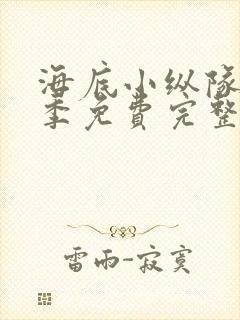 海底小纵队
季免费完整
雷雨-寂寞